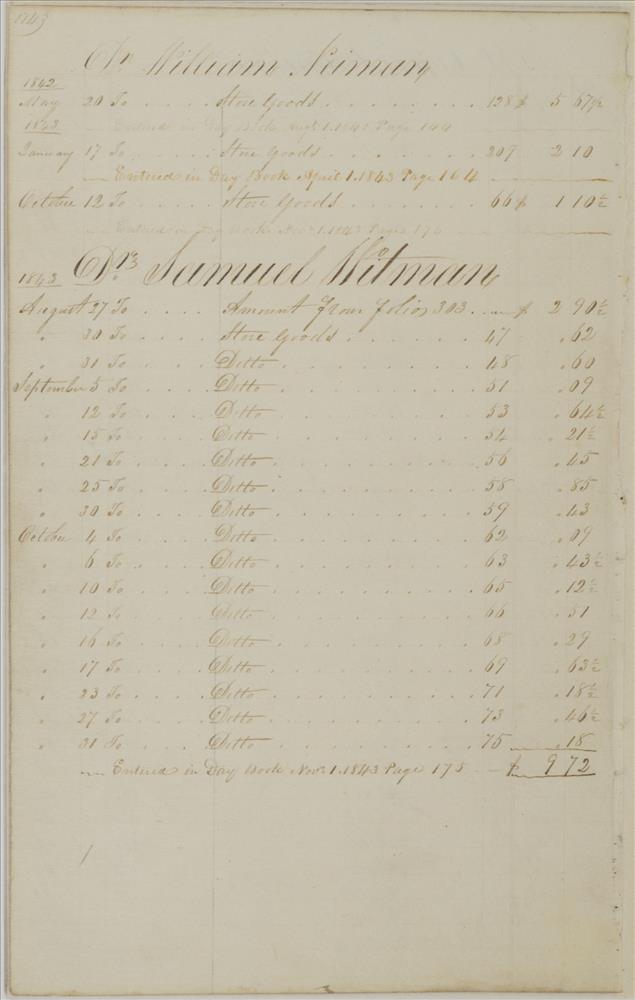 1843
Dr. William Neiman
1842
May 20 To . . . . Store Goods . . . . . . . . 128 $ 5 67½
1842
Entered in Day Book Augt. 1. 1842 Page 144
January 17 To . . . . Store Goods . . . . . . . 209 2 10
Entered in Day Book April 1. 1843 Page 164
October 12 To . . . . Store Goods . . . . . . . 66 $ 1 10½
Entered in Day Book Novr. 1. 1843 Page 174
1843 Dr. Samuel Witman
August 27 To . . . . Amount from folio 303 . . $ 2 90½
" 30 To . . . . Store Goods . . . . . . 47 . 62
" 31 To . . . . Ditto . . . . . . . . . 48 . 60
September 5 To . . . . Ditto . . . . . . . . . 51 . 09
" 12 To . . . . Ditto . . . . . . . . . 53 . 64½
" 15 To . . . . Ditto . . . . . . . . . 54 . 21½
" 21 To . . . . Ditto . . . . . . . . . 56 . 45
" 25 To . . . . Ditto . . . . . . . . . 58 . 85
" 30 To . . . . Ditto . . . . . . . . . 59 . 43
October 4 To . . . . Ditto . . . . . . . . . 62 . 09
" 6 To . . . . Ditto . . . . . . . . . 63 . 43½
" 10 To . . . . Ditto . . . . . . . . . 65 . 12½
" 12 To . . . . Ditto . . . . . . . . . 66 . 51
" 16 To . . . . Ditto . . . . . . . . . 68 . 29
" 17 To . . . . Ditto . . . . . . . . . 69 . 63½
" 23 To . . . . Ditto . . . . . . . . . 71 . 18½
" 27 To . . . . Ditto . . . . . . . . . 73 . 46½
" 31 To . . . . Ditto . . . . . . . . . 75 . 18
Entered in Day Book Novr. 1. 1843 Page 175 $ 9 72